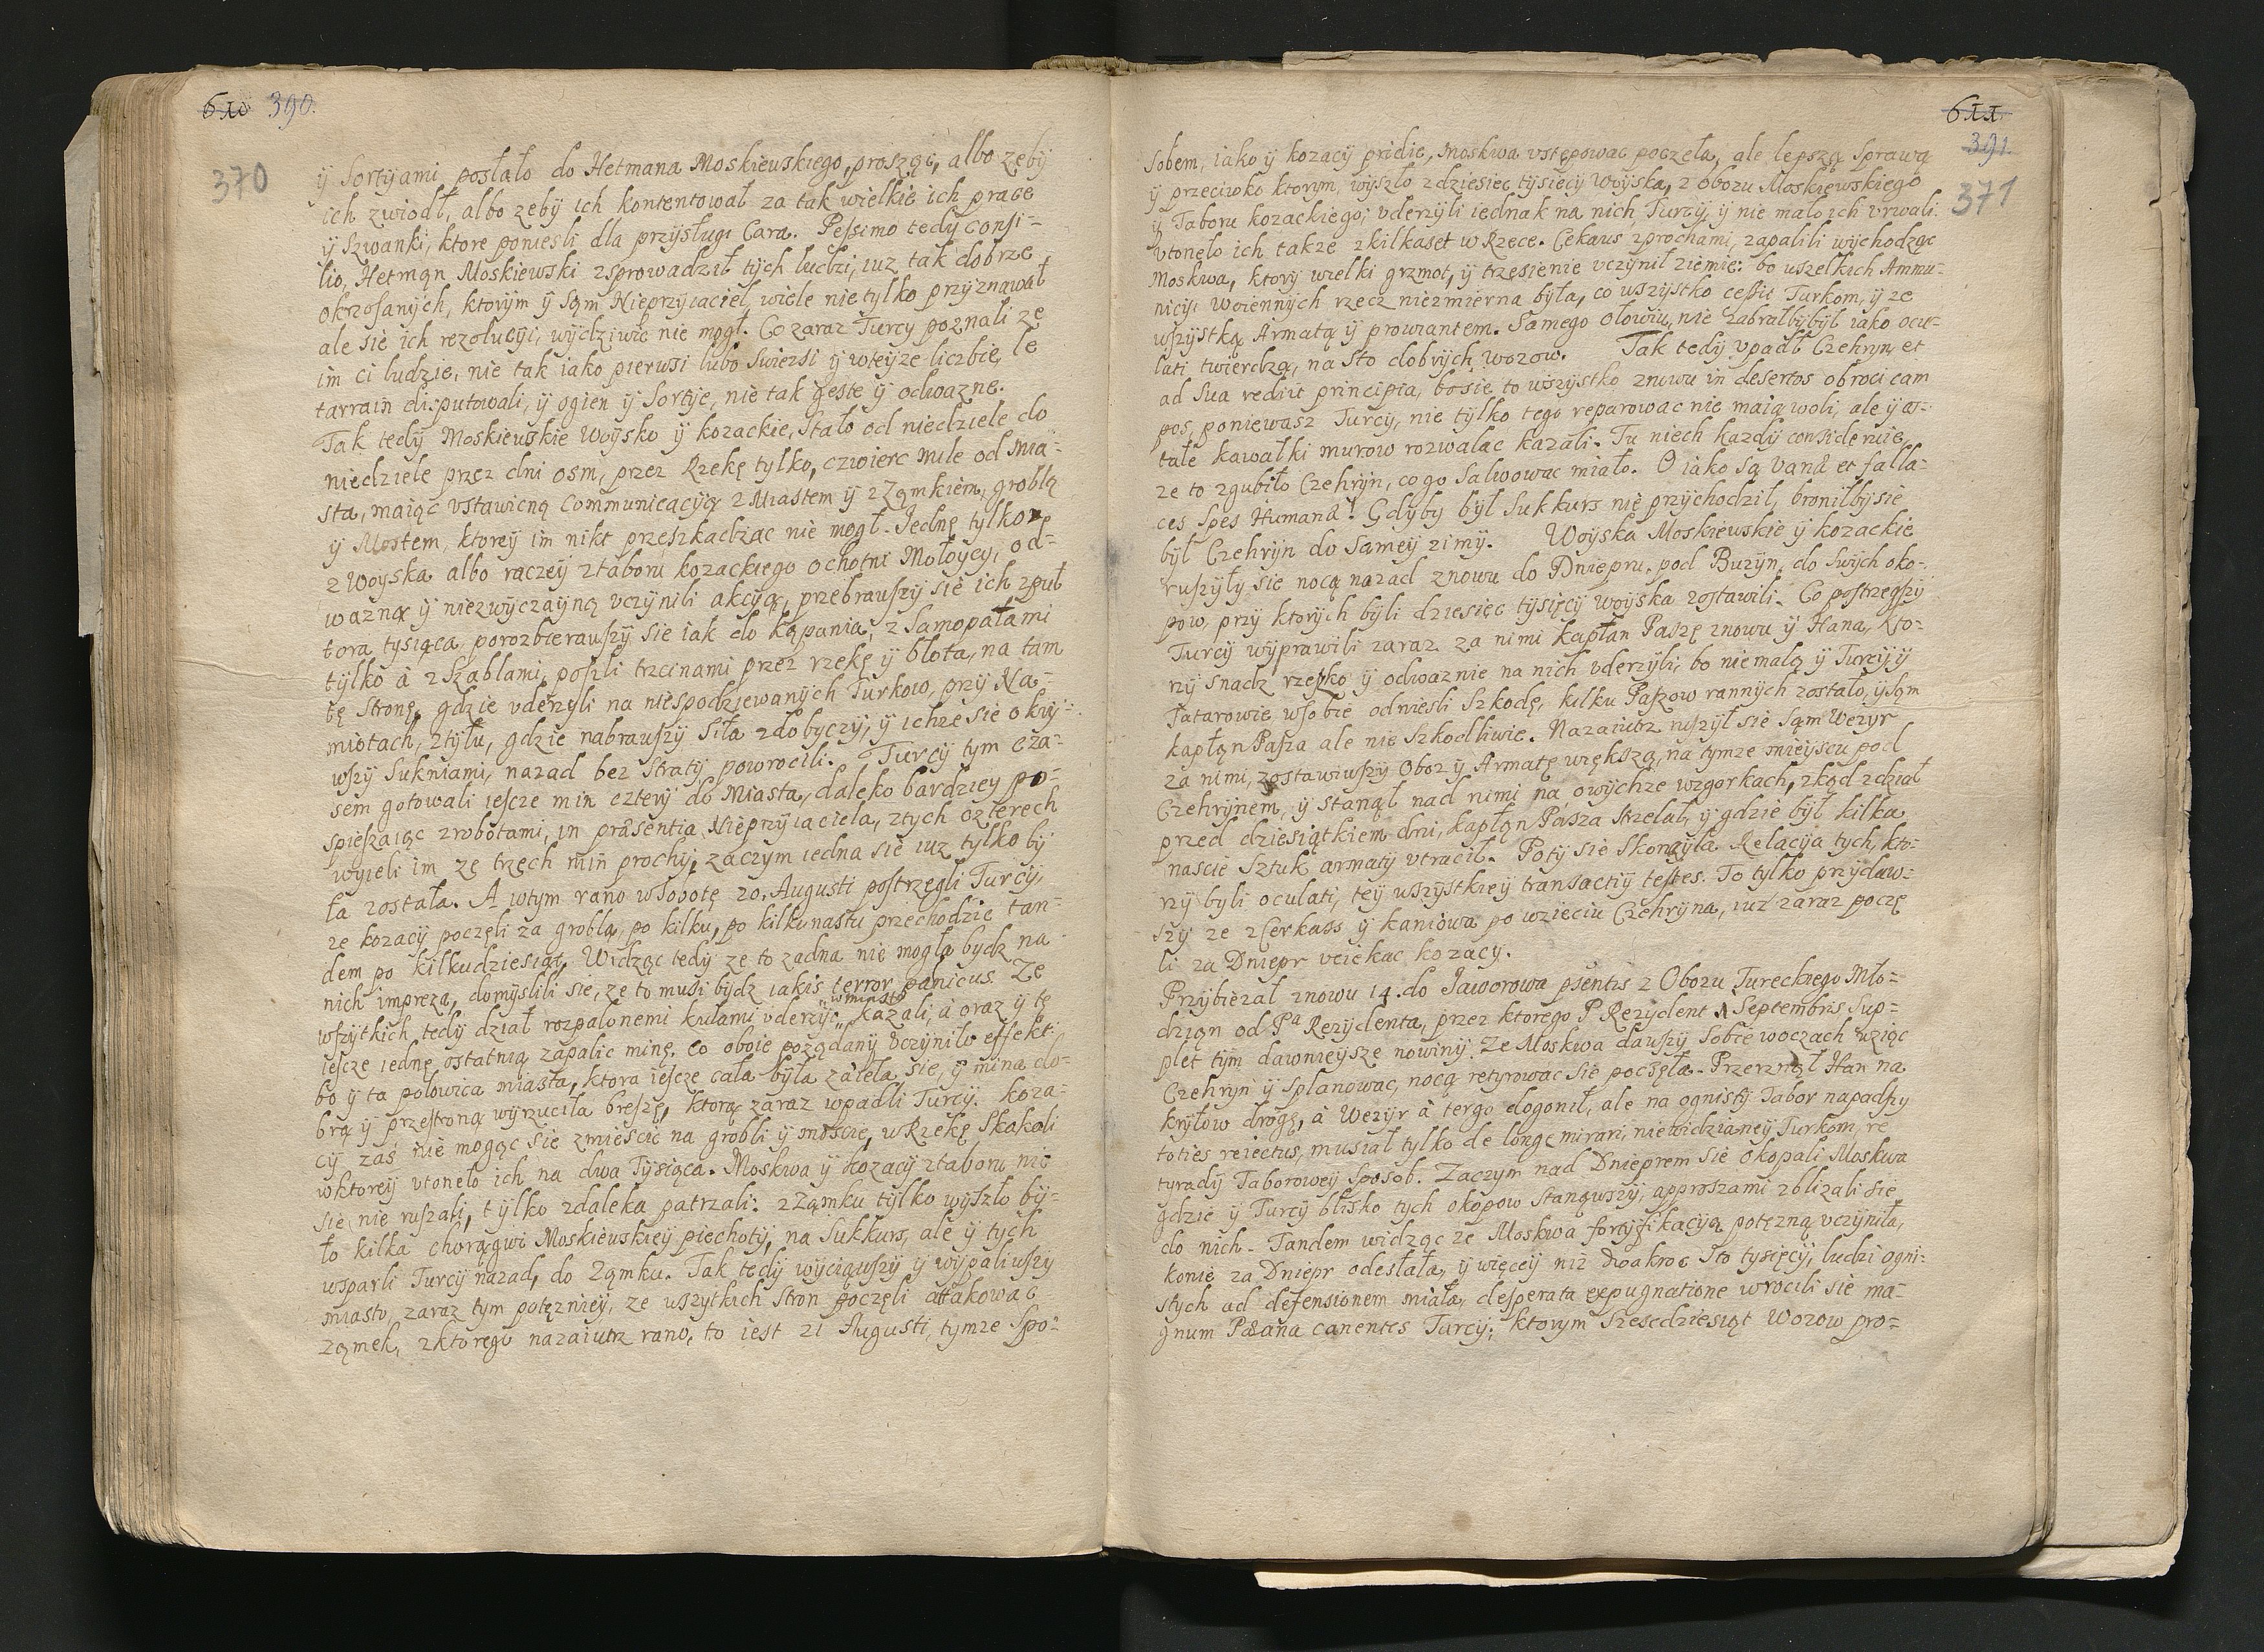 610 390.
370
ÿ Sortÿami posłało do Hetmana Moskiewskiego, prosząc, albo zebÿ
ich zwiodł, albo zebÿ ich kontentował za tak wielkie ich prace
ÿ Szwanki, ktore poniesli dla przÿsługi Cara. Pessimo tedÿ consi-
lio, Hetmąn Moskiewski zsprowadził tÿch ludzi, iuz tak dobrze
okrzosanÿch, ktorÿm ÿ sąm Nieprzÿiaciel, wiele nie tylko przÿznawał
ale się ich rezolucÿi, wÿdziwic nie mogł. Co zaraz Turcÿ poznali ze
im ci ludzie, nie tak iako pierwsi lubo swiezsi ÿ wteÿze liczbie, le
tarrain disputowali, ÿ ogien ÿ Sortÿe, nie tak gęste ÿ odwazne.
Tak tedÿ Moskiewskie Woÿsko ÿ kozackie, Stało od niedziele do
niedziele przez dni osm, przez Rzekę tylko, czwierc mile od Mia-
sta, maiąc vstawiczną Communicacÿią z Miastem ÿ z Ząmkiem, groblą
ÿ Mostem, ktoreÿ im nikt przeszkadzac nie mogł. Jednę tylko
z Woÿska albo raczeÿ z taboru kozackiego ochotni Mołoÿcÿ, od-
wazną ÿ niezwÿczaÿną vczÿnili akcÿą, przebrawszÿ się ich zpuł
tora tysiąca, porozbierawszÿ sie iak do kąpania, z Samopałami
tylko à z Szablami, poszli trzcinami przez rzekę ÿ błota, na tam
tę stronę, gdzie vderzÿli na niespodziewanÿch Turkow, przÿ Na-
miotach, ztÿłu, gdzie nabrawszÿ siła zdobÿczÿ, ÿ ichze się okrÿ-
wszÿ Sukniami, nazad bez Stratÿ powrocili. Turcÿ tym cza-
sem gotowali iescze min cztery do Miasta, daleko bardzieÿ po-
spieszaiąc z robotami, in præsentia Nieprzÿiaciela, z tych czterech
wÿieli im ze trzech min prochÿ, zaczym iedna się iuz tylko bÿ
ła została. A wtym rano w Sobotę 20. Augusti postrzegli Turcÿ,
ze kozacÿ poczęli za groblą, po kilku, po kilkunastu przechodzic tan-
dem po kilkudziesiąt. Widząc tedÿ ze to zadna nie mogła bÿdz na
nich impreza, domÿslili sie, ze to musi bÿdz iakis terror panicus. Ze
wszÿtkich tedÿ dział rozpalonemi kulami vderzÿc w miasto kazali, à oraz ÿ tę
iescze iednę ostatnią zapalic minę. Co oboie poządanÿ vczÿniło effekt
bo ÿ ta połowica miasta, ktora iescze cała bÿła zaięła sie, ÿ mina do-
brą ÿ przestroną wÿrzuciła breszę, ktorą zaraz wpadli Turcÿ. Koza-
cÿ zas nie mogąc sie zmiescic na grobli ÿ moscie, w Rzekę skakali
wktoreÿ vtoneło ich na dwa Tÿsiąca. Moskwa ÿ kozacÿ z taboru nie
sie nie ruszali, tÿlko zdaleka patrzali: z Ząmku tÿlko wÿszło bÿ-
ło kilka chorągwi Moskiewskieÿ piechotÿ, na Sukkurs, ale ÿ tÿch
wsparli Turcÿ nazad, do Ząmku. Tak tedÿ wÿciąwszÿ ÿ wÿpaliwszÿ
miasto, zaraz tym potęznieÿ, ze wszÿtkich stron poczęli attakowac
ząmek, z ktorego nazaiutrz rano, to iest 21 Augusti, tymze spo-
611
391.
371
sobem, iako ÿ kozacÿ pridie, Moskwa vstępowac poczęła, ale lepszą sprawą
ÿ przeciwko ktorym, wÿszło zdziesiec tysięcÿ Woÿska, z obozu Moskiewskiego
ÿ Taboru kozackiego; vderzÿli iednak na nich Turcÿ, ÿ nie mało ich vrwali.
vtoneło ich takze z kilkaset w Rzece. Cekaus z prochami, zapalili wÿchodząc
Moskwa, ktorÿ wielki grzmot, ÿ trzęsienie vczÿnił ziemie: bo wszelkich Ammu-
nicÿi woiennÿch rzecz niezmierna bÿła, co wszÿstko cessit Turkom, ÿ ze
wszÿstką Armatą ÿ prowiantem. Samego ołowiu, nie zabrałbÿbÿł iako ocu-
lati twierdzą, na sto dobrÿch wozow. Tak tedÿ vpadł Czehrÿn, et
ad sua rediit principia, bo sie to wszÿstko znowu in desertos obroci cam
pos, poniewasz Turcÿ, nie tÿlko tego reparowac nie maią woli, ale ÿ os-
tałe kawałki murow rozwalac kazali. Tu niech kazdÿ consideruie,
ze to zgubiło Czehrÿn, co go Salwowac miało. O iako są vana et falla-
ces spes Humanæ! Gdÿby bÿł Sukkurs nie przÿchodził, broniłbÿ sie
bÿł Czehrÿn do sameÿ zimÿ. Woÿska Moskiewskie ÿ kozackie
ruszÿłÿ sie nocą nazad znowu do Dniepru, pod Buzÿn, do swÿch oko-
pow, przÿ ktorÿch bÿli dziesięc tÿsięcÿ woÿska zostawili. Co postrzegszÿ
Turcÿ wÿprawili zaraz za nimi kapłan Paszę znowu ÿ Hana, kto-
rzÿ snadz rzezko ÿ odwaznie na nich vderzÿli, bo niemałą ÿ Turcÿ ÿ
Tatarowie w sobie odniesli szkodę, kilku Paszow rannÿch zostało, ÿ sąm
kapłąn Pasza ale nie szkodliwie. Nazaiutrz ruszÿł sie sąm Wezÿr
za nimi, zostawiwszÿ Oboz ÿ Armatę większą, na tymze mieÿscu pod
Czehrÿnem, ÿ stanął nad nimi na owÿchze wzgorkach, zkąd z dział
przed dziesiątkiem dni, kapłąn Pasza strzelał, ÿ gdzie bÿł kilka
nascie sztuk armatÿ vtracił. Potÿ sie skonczÿła Relacÿa tych, kto-
rzÿ bÿli oculati, teÿ wszÿstkieÿ transactiÿ testes. To tylko przÿdaw-
szÿ ze z Czerkass ÿ kaniowa po wzieciu Czehrÿna, iuz zaraz poczę
li za Dniepr vciekac kozacÿ.
Przÿbiezał znowu 14. do Jaworowa psentis z Obozu Tureckiego Mło-
dzian od Pª Rezÿdenta, przez ktorego P Rezÿdent 1 Septembris sup-
plet tÿm dawnieÿsze nowinÿ. Ze Moskwa dawszÿ sobie woczach wziąc
Czehrÿn ÿ splanowac, nocą retyrowac sie poczęła. Przerznął Han na
Krÿłow drogę, à Wezÿr à tergo dogonił, ale na ognistÿ Tabor napadszÿ
toties reiectus, musiał tylko de longe mirari, niewidzianeÿ Turkom, re
tyradÿ Taboroweÿ sposob. Zaczym nad Dnieprem sie okopali Moskwa
gdzie ÿ Turcÿ blisko tych okopow stanąwszÿ, approszami zblizali sie
do nich. Tandem widząc ze Moskwa fortÿfikacÿą potęzną vczÿniła,
konie za Dniepr odesłała, ÿ więceÿ niz dwakroc sto tysięcÿ, ludzi ogni-
stych ad defensionem miała, desperata expugnatione wrocili sie ma-
gnum Pæana canentes Turcÿ; ktorÿm szescdziesiąt Wozow pro-